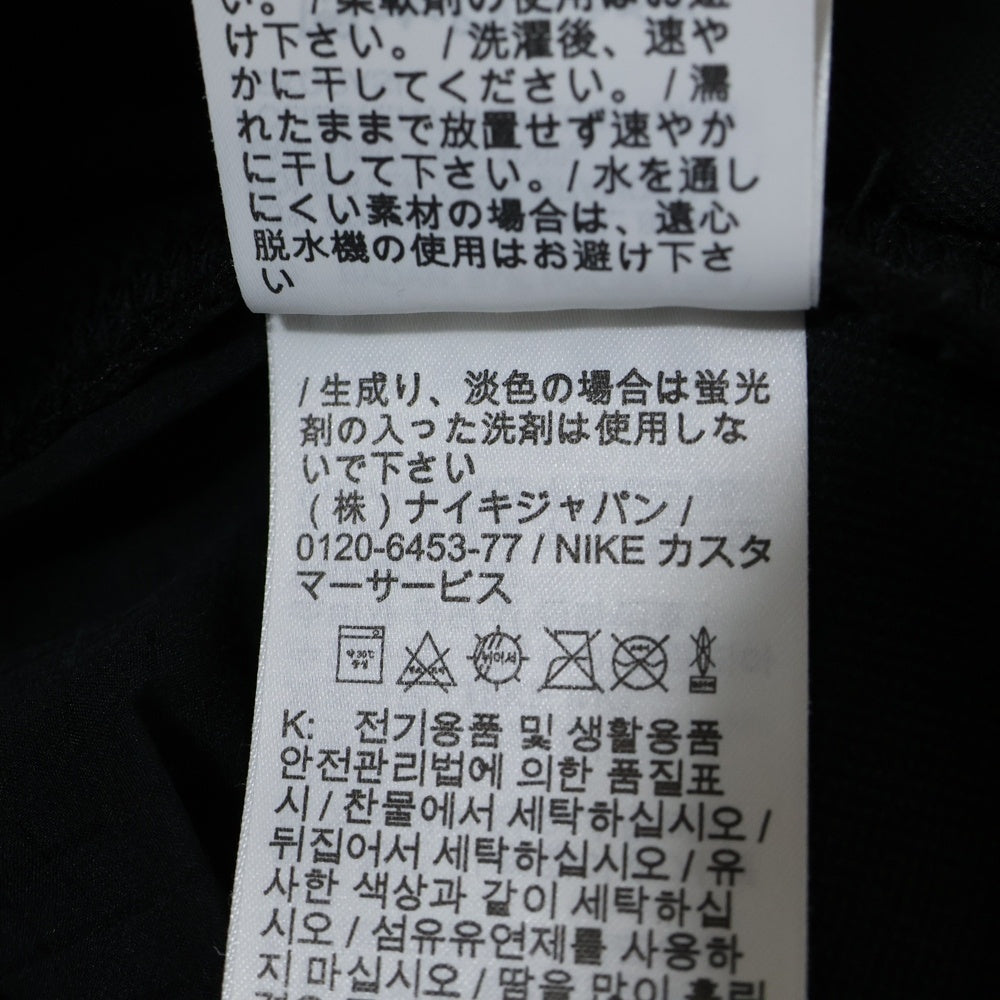 い。/ 柔軟剤の使用はお避
け下さい。/ 洗濯後、速や
かに干してください。/ 濡
れたままで放置せず速やか
に干して下さい。/ 水を通し
にくい素材の場合は、遠心
脱水機の使用はお避け下さ
い
/ 生成り、淡色の場合は蛍光
剤の入った洗剤は使用しな
いで下さい
(株) ナイキジャパン /
0120-6453-77 / NIKE カスタ
マーサービス
약 30℃
중성
K: 전기용품 및 생활용품
안전관리법에 의한 품질표
시 / 찬물에서 세탁하십시오 /
뒤집어서 세탁하십시오 / 유
사한 색상과 같이 세탁하십
시오 / 섬유유연제를 사용하
지 마십시오 / 땀을 많이 흘린